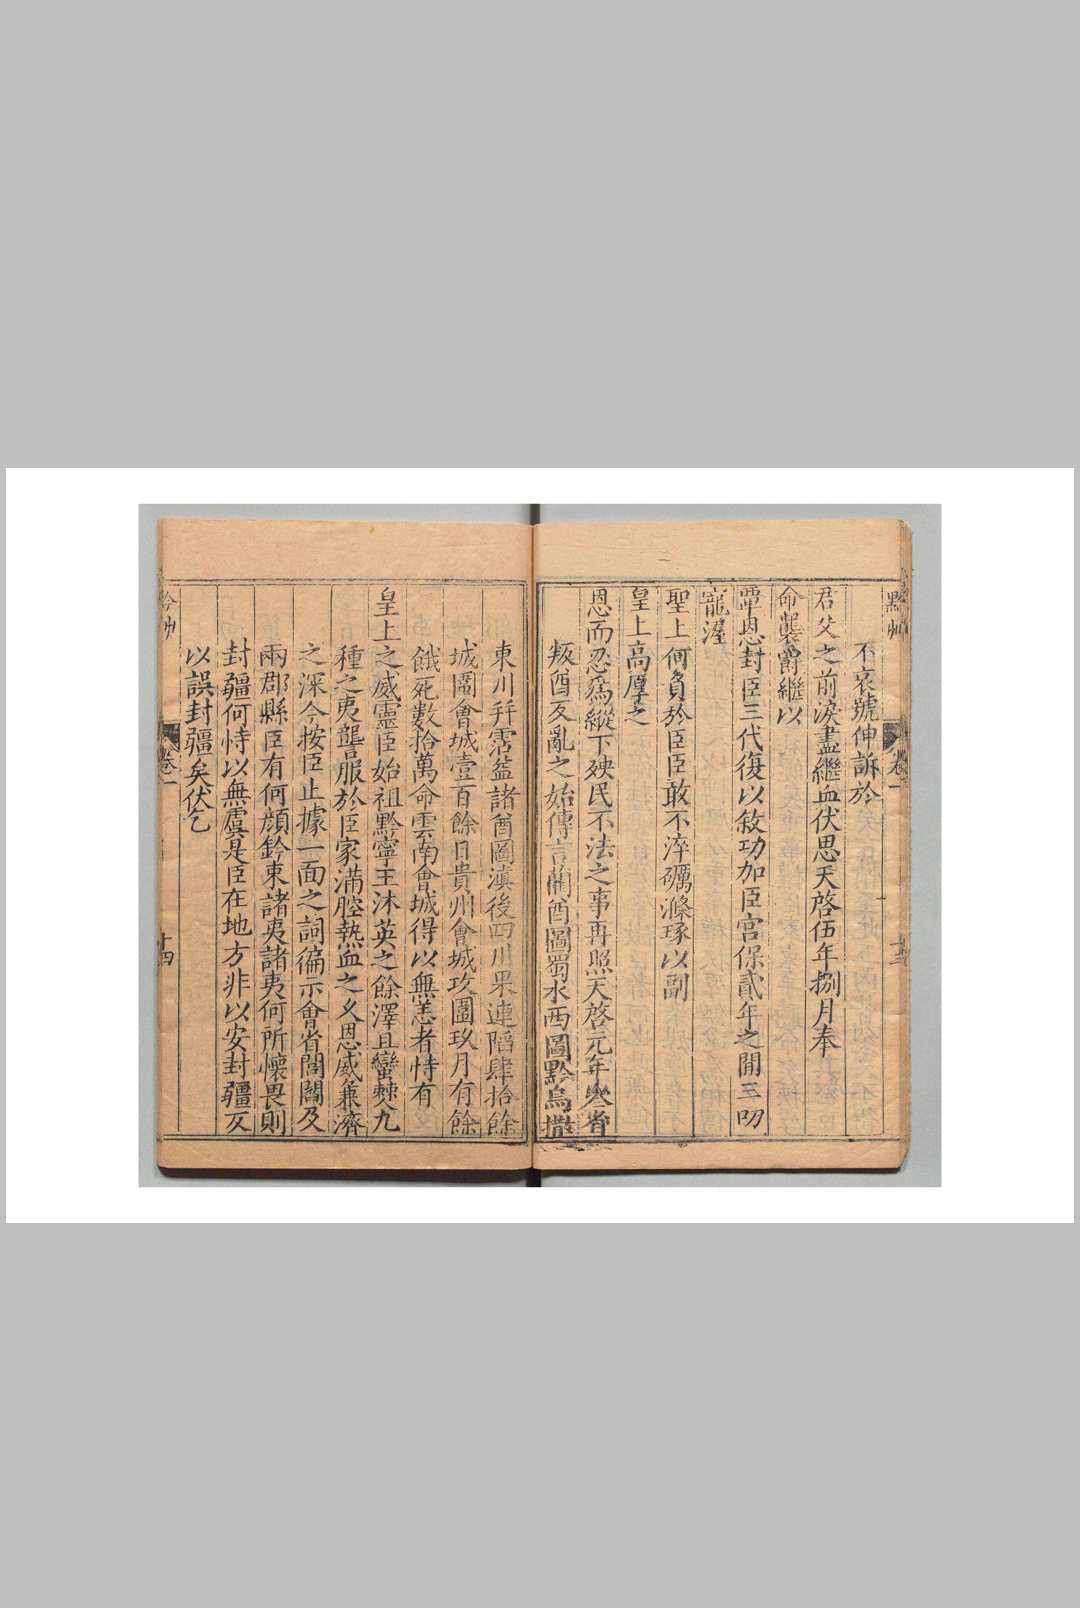 黔艸
卷一
十三
不哀號伸訴於
君父之前淚盡繼血伏思天啓伍年捌月奉
命襲爵繼以
覃恩封臣三代復以敘功加臣宮保貳年之間三叨
寵渥
聖上何負於臣臣敢不淬礪滌琢以副
皇上高厚之
恩而忍爲縱下殃民不法之事再照天啓元年叄省
叛酋反亂之始傳言藺酋圖蜀水西圖黔烏撒
東川幷霑益諸酋圖滇後四川果連陷肆拾餘
城圍會城壹百餘日貴州會城攻圍玖月有餘
餓死數拾萬命雲南會城得以無恙者恃有
皇上之威靈臣始祖黔寧王沐英之餘澤且蠻僰九
種之夷讋服於臣家滿腔熱血之久恩威兼濟
之深今按臣止據一面之詞徧示會省閭閻及
兩郡縣臣有何顔鈐束諸夷諸夷何所懷畏則
封疆何恃以無虞是臣在地方非以安封疆反
以誤封疆矣伏乞
卷一
十四